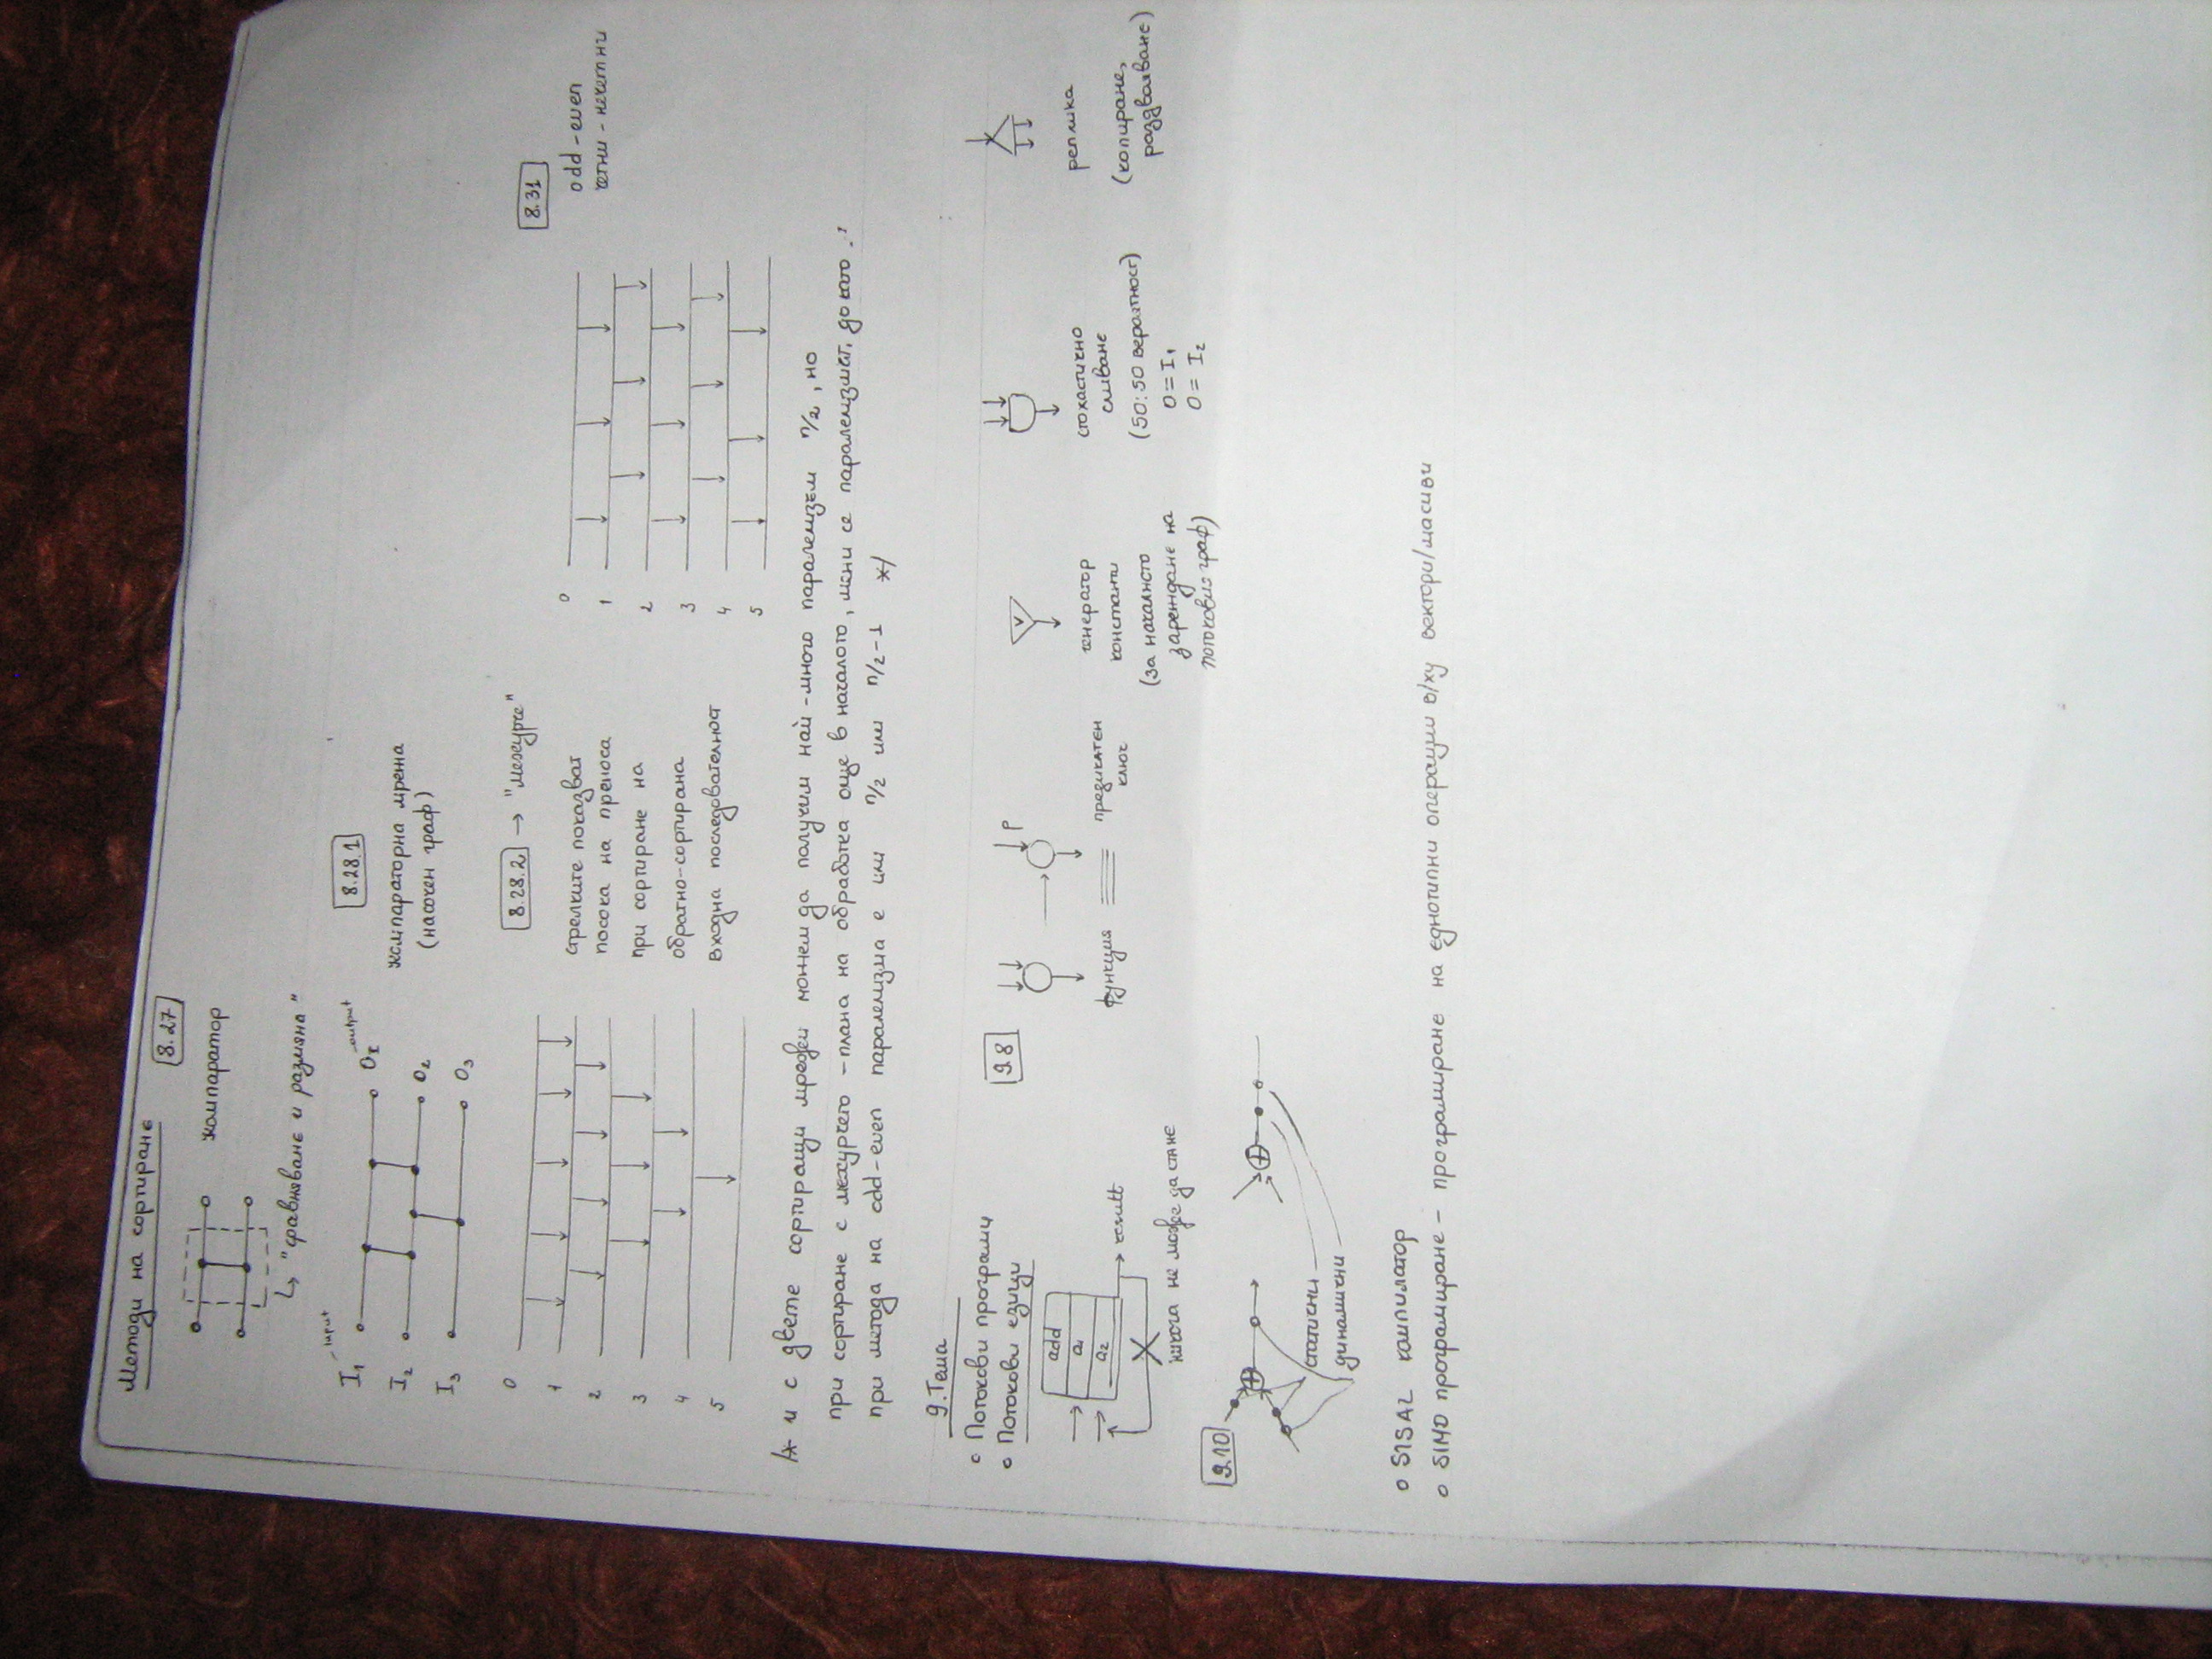 Методи на сортиране
8.27
компаратор
↳ "сравняване и размяна"
8.28.1
I₁ - input
O₁ - output
I₂
O₂
I₃
O₃
компараторна мрежа
(насочен граф)
8.28.2 → "мехурче"
0
1
2
3
4
5
стрелките показват
посока на преноса
при сортиране на
обратно-сортирана
входна последователност
8.31
odd-even
четни-нечетни
0
1
2
3
4
5
/* и с двете сортиращи мрежи можем да получим най-много паралелизъм n/2, но
при сортиране с мехурчето - плана на обработка още в началото, мени се паралелизмът, докато
при метода на odd-even паралелизма е или n/2 или n/2-1 */
9. Тема
o Потокови програми
o Потокови езици
add
a₁
a₂
result
никога не може да стане
9.8
функция
P
предикатен
ключ
V
генератор
константи
(за началното
зареждане на
потоковия граф)
стохастично
сливане
(50:50 вероятност)
O = I₁
O = I₂
реплика
(копиране,
раздвояване)
9.10
статични
динамични
o SISAL компилатор
o SIMD програмиране - програмиране на еднотипни операции в/ху вектори/масиви